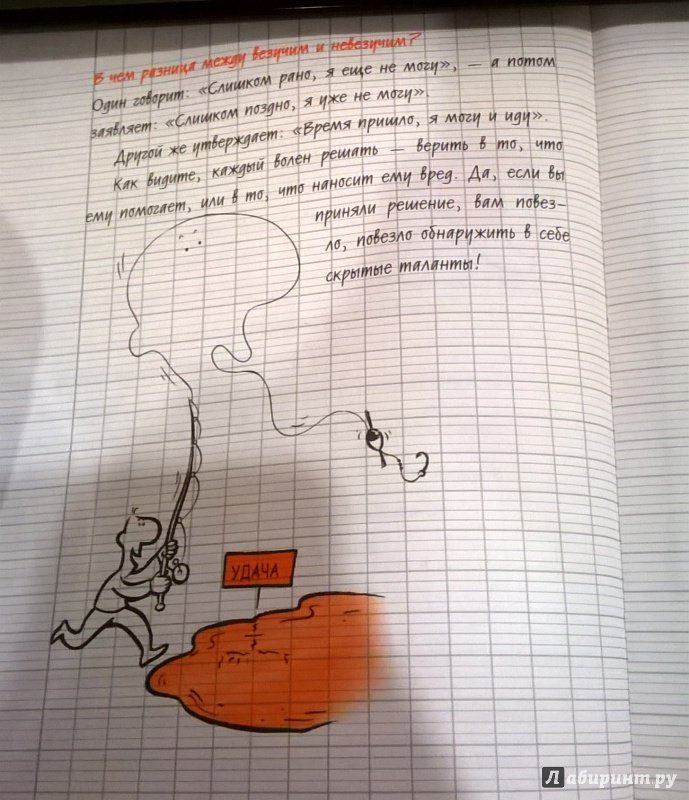 В чем разница между везучим и невезучим?
Один говорит: «Слишком рано, я еще не могу», — а потом
заявляет: «Слишком поздно, я уже не могу».
Другой же утверждает: «Время пришло, я могу и иду».
Как видите, каждый волен решать — верить в то, что
ему помогает, или в то, что наносит ему вред. Да, если вы
приняли решение, вам повез-
ло, повезло обнаружить в себе
скрытые таланты!
УДАЧА
Лабиринт.ру